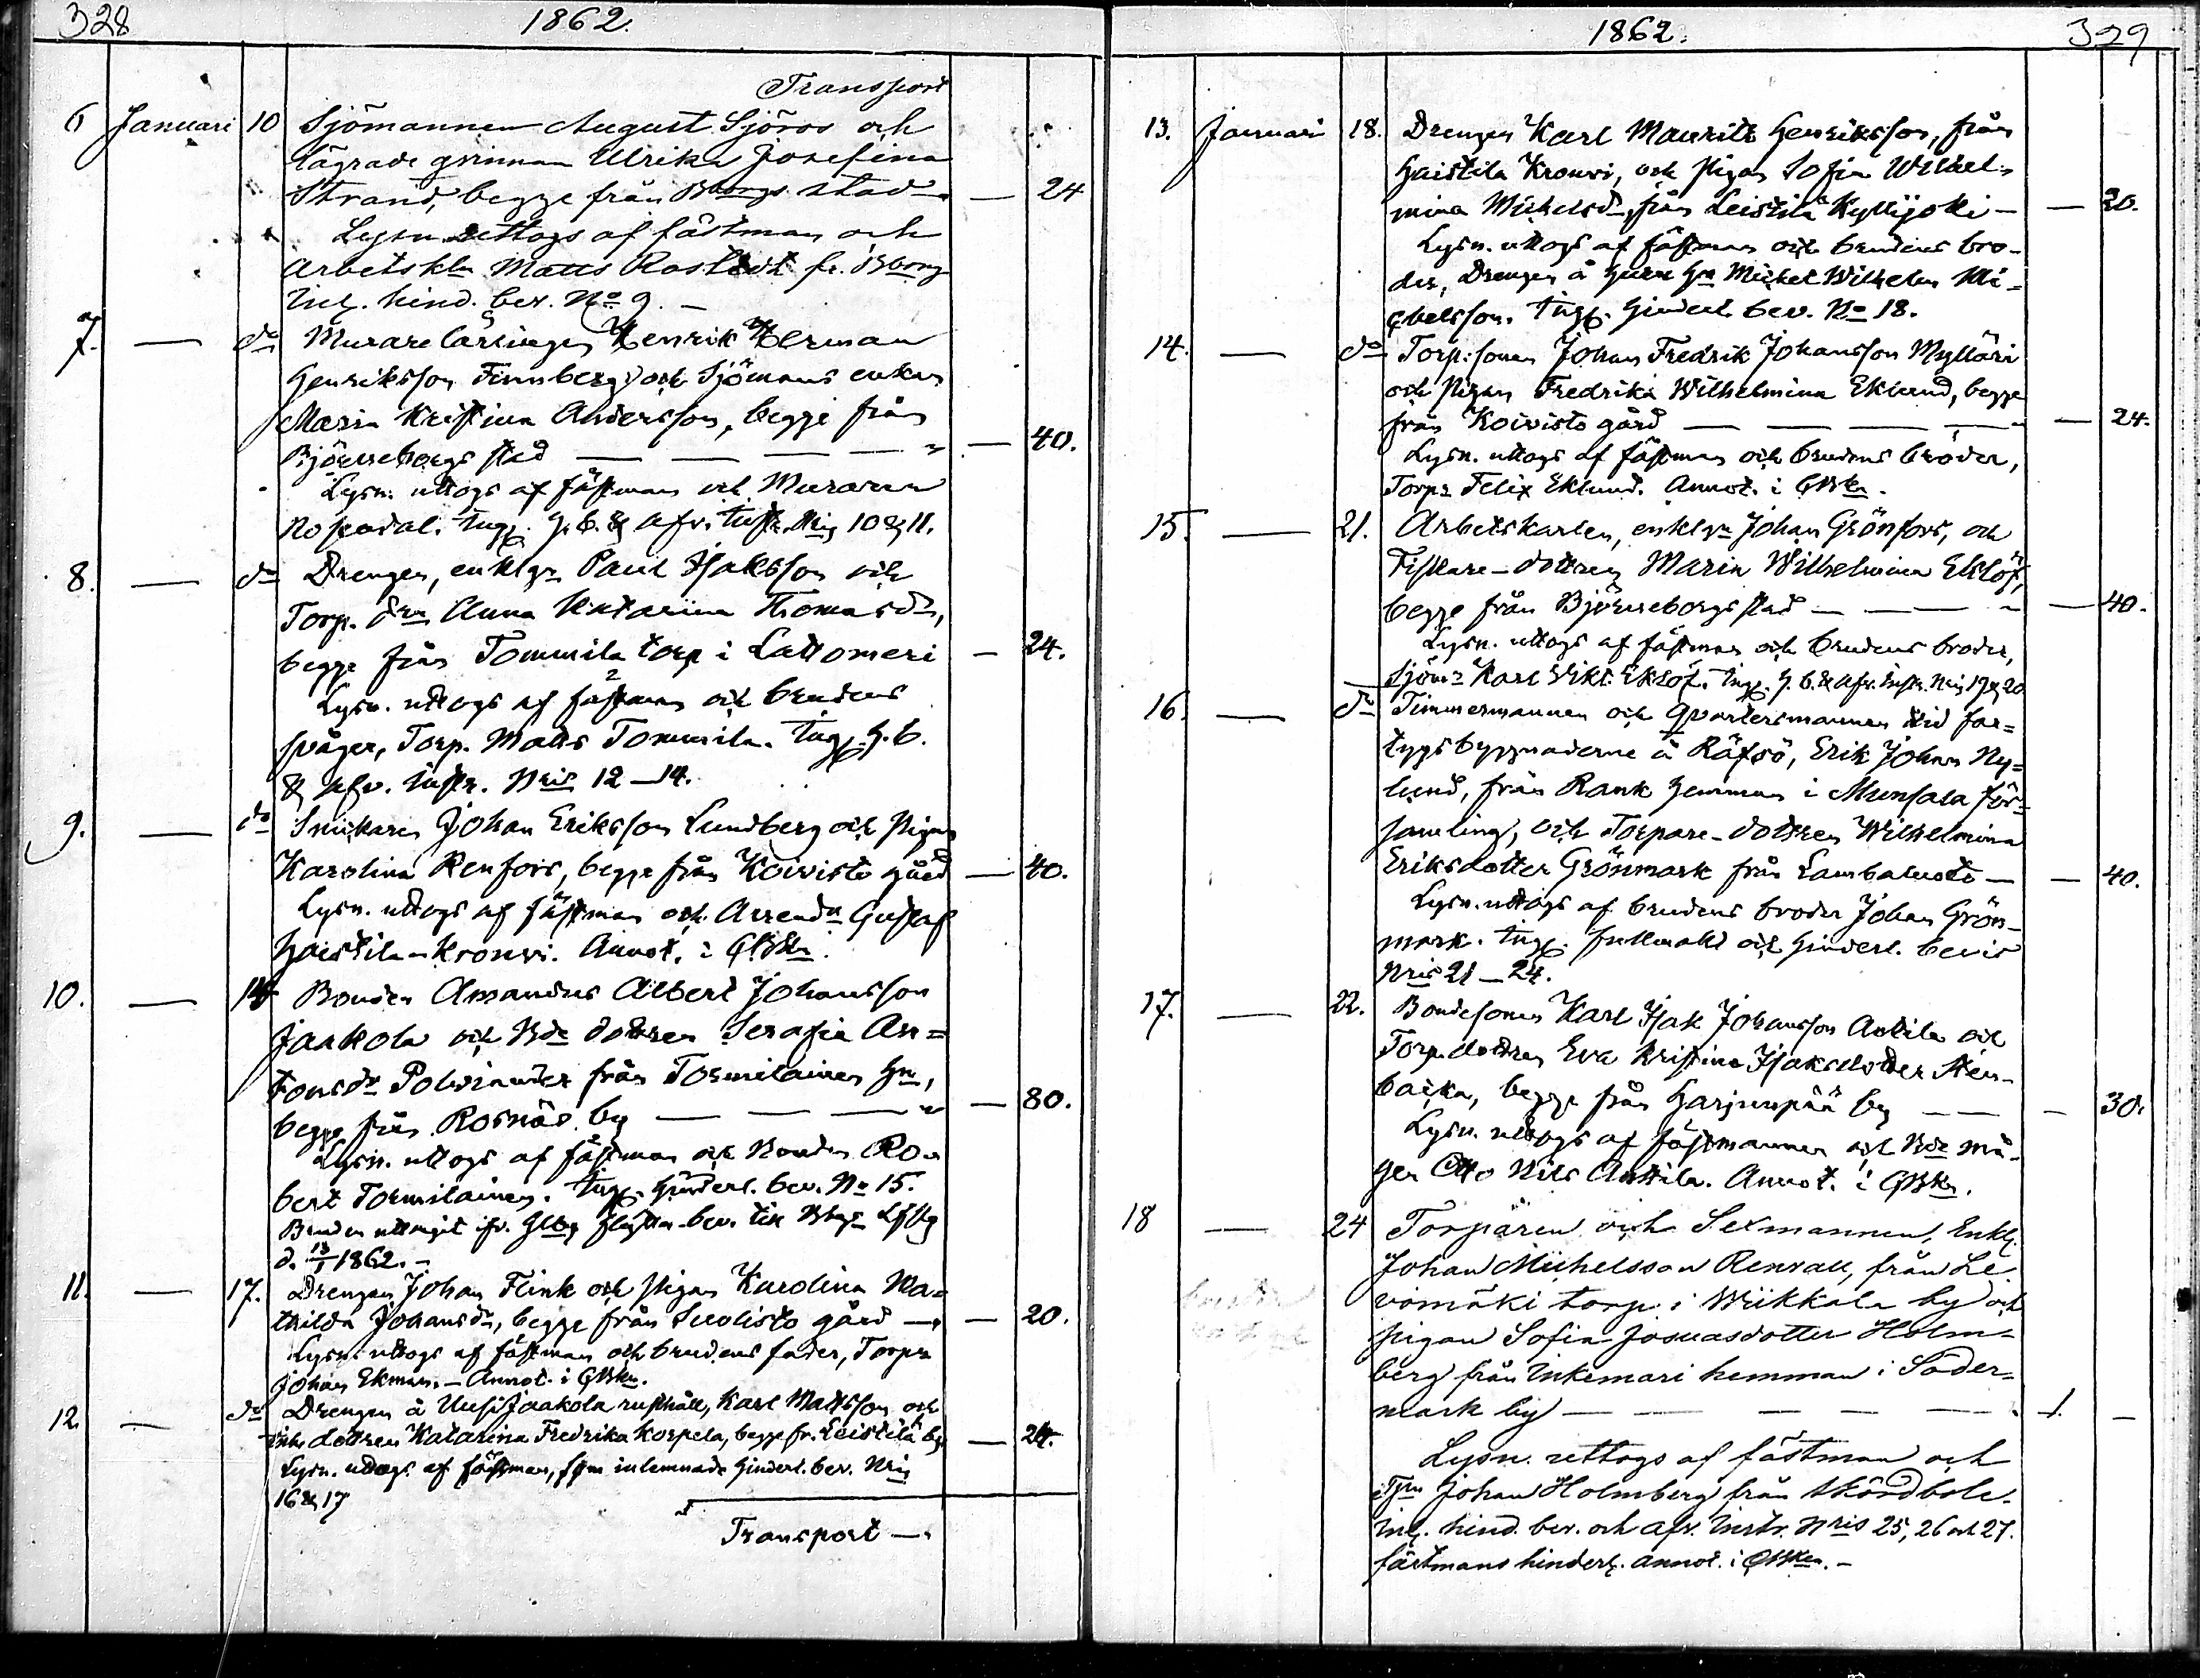 328 1862.
Transport
6 Januari 10 Sjömannen August Sjöros och
Lägrade qvinnan Ulrika Josefina
Strand, begge från Bborgs stad — 24
Lysn uttogs af fästman och
Arbetskln Matts Rostedt fr. Bborg
Inl. hind. bev. No 9. —
7. — do Murarelärlingen Henrik Herman
Henriksson Finnberg och Sjömans enkan
Maria Kristina Andersson, begge från
Björneborgs stad — — — — — 40.
Lysn. uttogs af fästman och Muraren
Rosendal. Ingg. H. b. & Afv. Instr. Nris 10 & 11.
8. — do Drengen, enklgn Paul Isaksson och
Torp. drn Anna Katarina Thomasdr,
begge från Tommila torp i Lattomeri — 24.
Lysn. uttogs af fästman och brudens
svåger, Torp. Matts Tommila. Ingg. H. b.
& Afv. Instr. Nris 12—14.
9. — do Snickaren Johan Eriksson Lundberg och Pigan
Karolina Renfors, begge från Koivisto gård — 40.
Lysn. uttogs af fästman och Arrendn Gustaf
Haistila-Kronvi. Annot. i QBkn.
10. — 14 Bonden Amandus Albert Johansson
Jaakola och Bde dottren Serafia An=
tonsdr Polvinander från Tormilainen Hn,
begge från Rosnäs by — — — — 80.
Lysn. uttogs af fästman och Bonden Ro=
bert Tormilainen. Ingg. Hinderl. bev. No 15.
d. 13/1 1862. —
11. — 17. Drengen Johan Flink och Pigan Karolina Ma=
thilda Johansdr, begge från Suolisto gård — — 20.
Lysn. uttogs af fästman och brudens fader, Torpn
Johan Ekman. — Annot. i QBkn.
12 — do Drengen å Uusi Jaakola rusthåll, Karl Mattsson och
dottren Katarina Fredrika Korpela, begge fr. Leistilä by — 24.
Lysn. uttogs af fästman, som inlemnade Hinderl. bev. Nris
16 & 17
Transport —
1862. 329
13. Januari 18. Drengen Karl Maurits Henriksson, från
Haistila Kronvi, och Pigan Sofia Wilhel=
mina Mickelsdr, från Leistilä Kyllijoki — — 20.
Lysn. uttogs af fästman och brudens bro=
der, Drengen å Hn Mickel Wilhelm Mi=
chelsson. Ingg. Hinderl. bev. No 18.
14. — do Torp:sonen Johan Fredrik Johansson Mylläri
och Pigan Fredrika Wilhelmina Eklund, begge
från Koivisto gård — — — — — 24.
Lysn. uttogs af fästman och brudens broder,
Torpn Felix Eklund. Annot. i QBkn.
15. — 21. Arbetskarlen, enklgn Johan Grönfors, och
Fiskare-dottren Maria Wilhelmina Eklöf,
begge från Björneborgs stad — — — — 40.
Lysn. uttogs af fästman och brudens broder,
Sjömn Karl Vikt. Eklöf. Ingg. H. b. & Afv. Instr. Nris 19 & 20
16. — do Timmermannen och Qvartersmannen vid far=
tygsbyggnaderne å Räfsö, Erik Johan Ny=
lund, från Rank hemman i Munsala för=
samling, och Torpare-dottren Wilhelmina
Eriksdotter Grönmark från Lambaluoto — — 40.
Lysn. uttogs af brudens broder Johan Grön=
mark. Ingg. fullmakt och Hinderl. bevis
Nris 21—24.
17. — 22. Bondesonen Karl Isak Johansson Anttila och
Torp.dottren Eva Kristina Isaksdotter Sten=
backa, begge från Harjunpää by — — — 30.
Lysn. uttogs af fästmannen och Bde må=
gen Otto Nils Anttila. Annot. i QBkn.
18 — 24 Torparen och Sexmannen, Enkl.
Johan Michelsson Renvall, från Le
vomäki torp i Wiikkala by och
pigan Sofia Josuasdotter Holm=
berg från Inkemari hemman i Söder=
mark by — — — — — 1. —
Lysn. uttogs af fästman och
Johan Holmberg från Skördbole.
Inl. hind. bev. och afv. Instr. Nris 25, 26 och 27.
fästmans hinderl. annot. i QBken. —